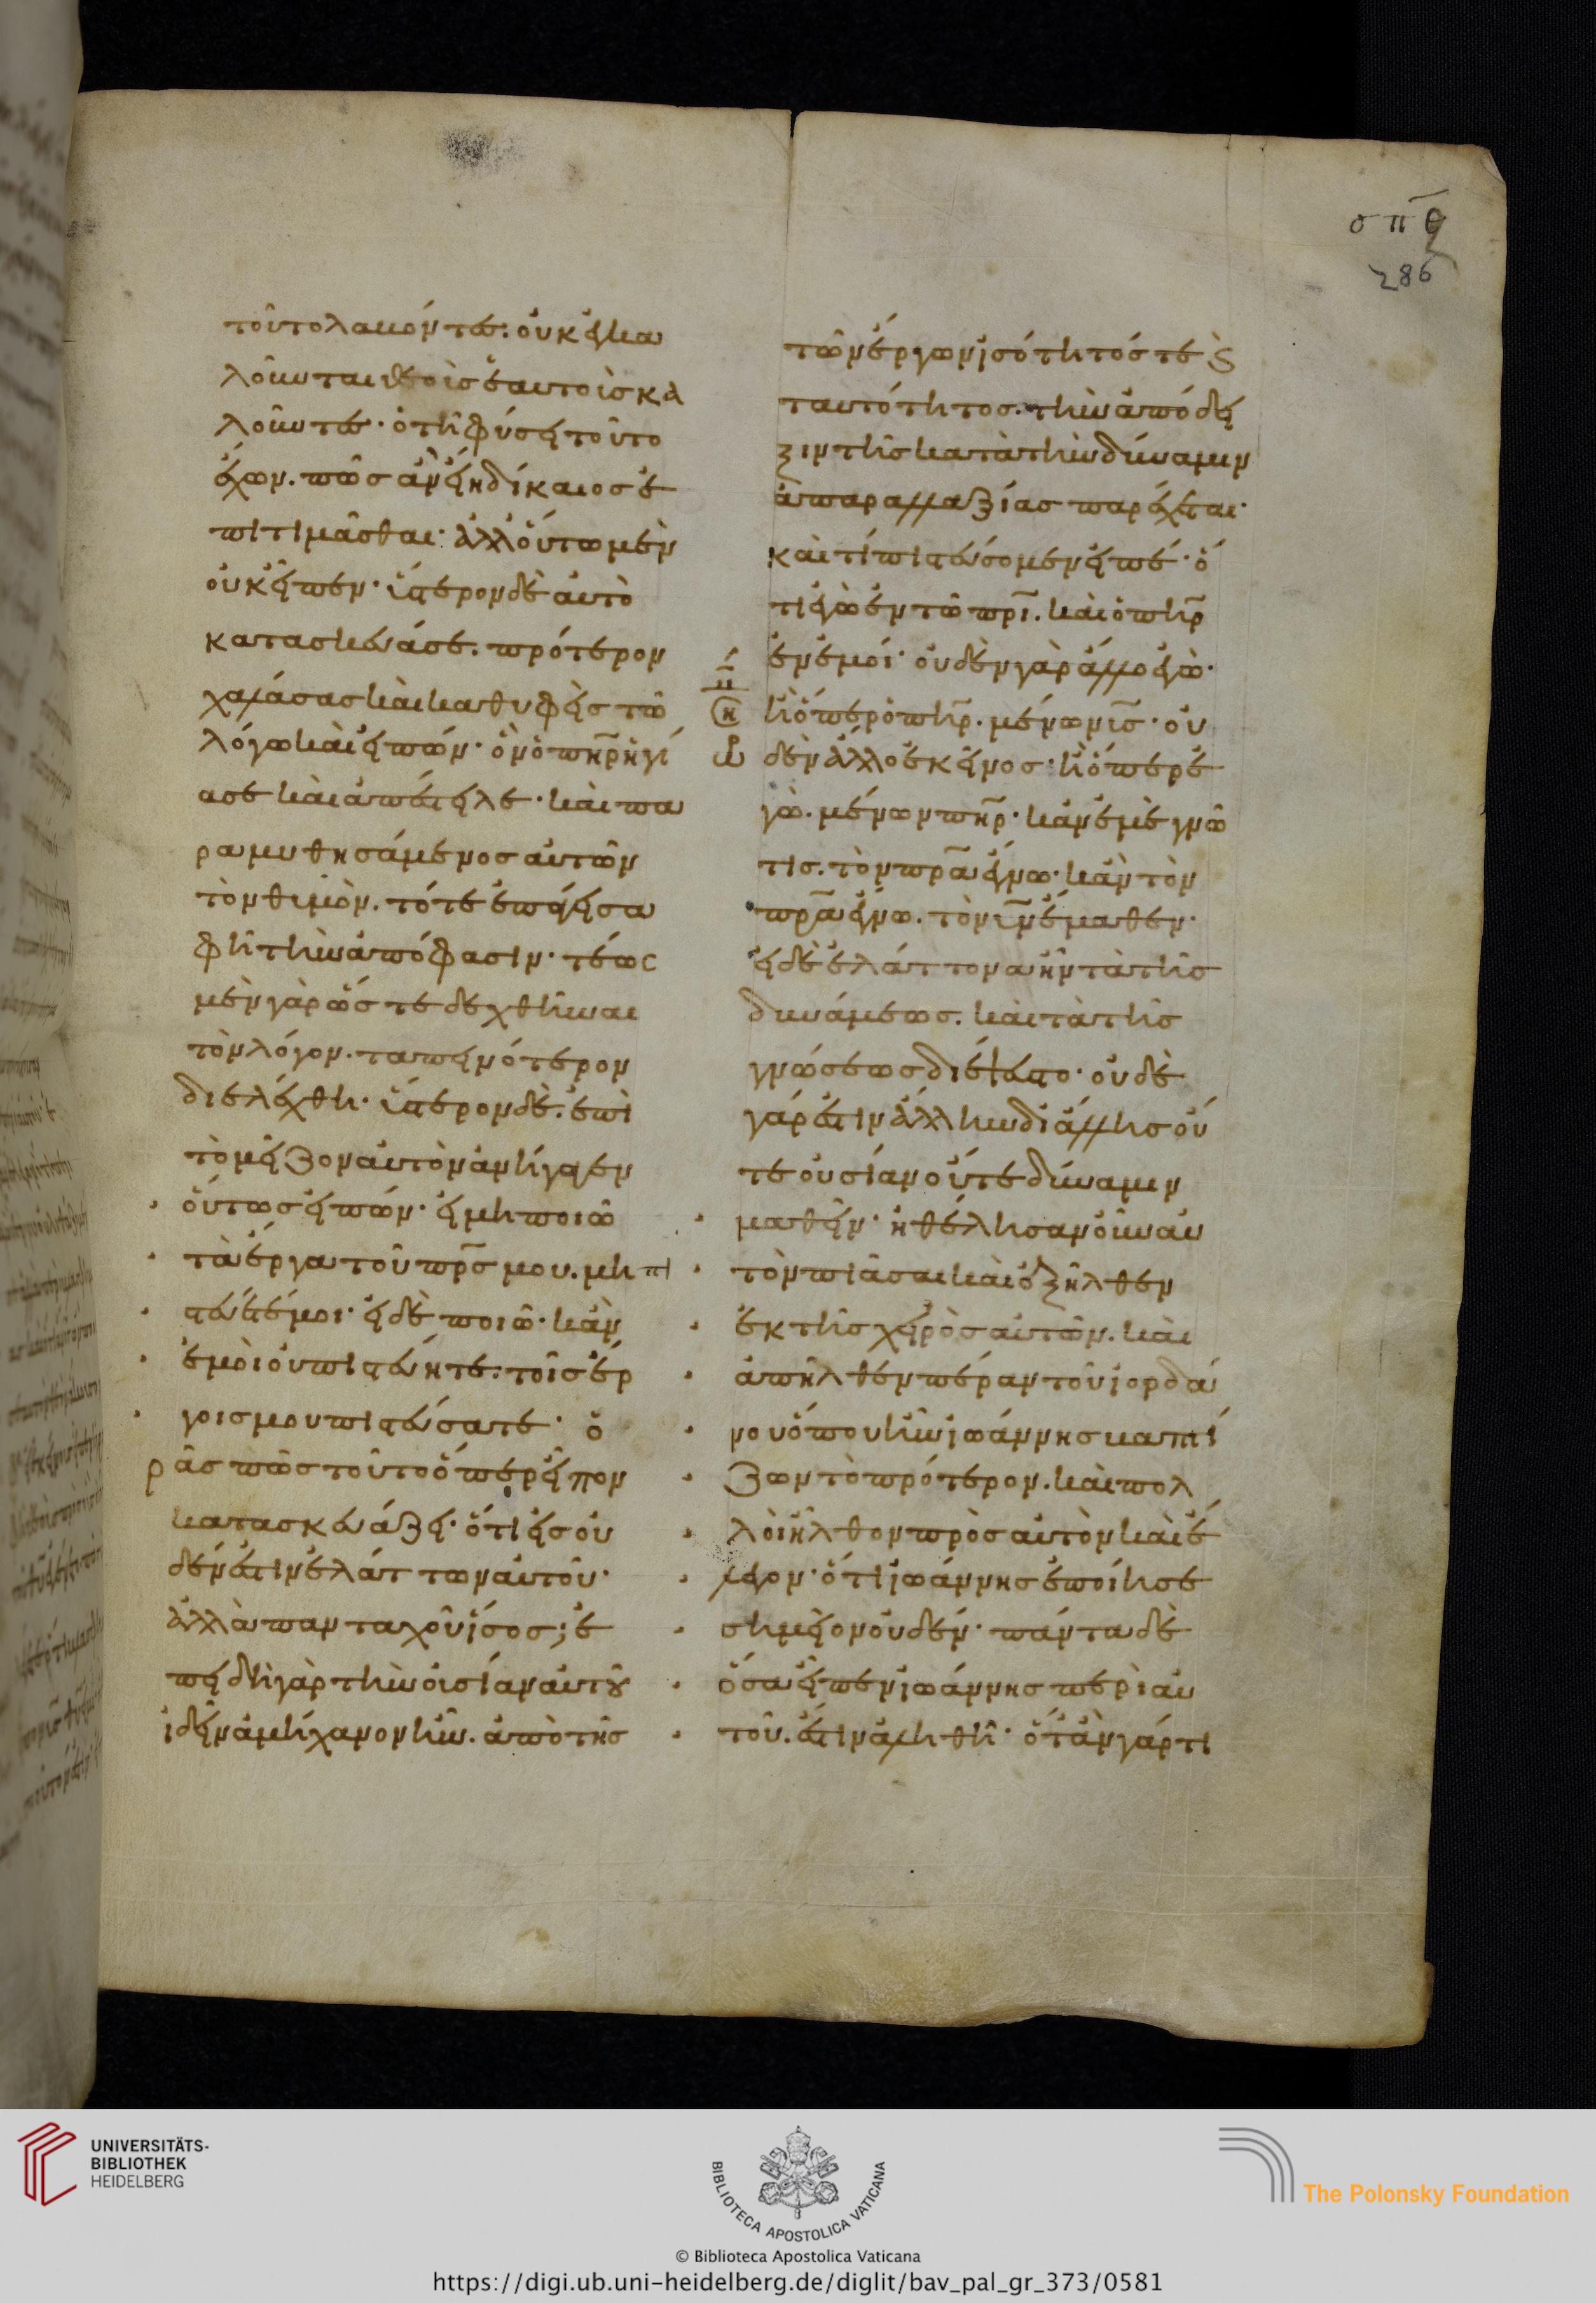 τοῦτο λαβόντες· οὐκ ἐγκα
λοῦνται θεοὺς ἑαυτοὺς κα
λοῦντες· ὁ τῆ φύσει τοῦτο
ἔχων. πῶς ἂν εἴη δίκαιος ἐ
πιτιμᾶσθαι· ἀλλ' οὕτω μὲν
οὐκ εἶπεν· ὕστερον δὲ αὐτὸ
κατασκευάσε. πρότερον
χαλάσας καὶ καθυφεὶς τῶ
λόγω καὶ εἰπών· ὃν ὁ πηρ ἡγί
ασε καὶ ἀπέστειλε· καὶ πα
ραμυθησάμενος αὐτῶν
τὸν θυμὸν. τότε ἐπάγει σα
φῆ τὴν ἀπόφασιν· τέως
μὲν γὰρ ὥστε δεχθῆναι
τὸν λόγον. ταπεινότερον
διελέχθη· ὕστερον δὲ. ἐπὶ
τὸ μεῖζον αὐτὸν ἀνήγαγεν
οὕτως εἰπών· εἰ μὴ ποιῶ
τὰ ἔργα τοῦ πρς μου. μὴ πι
στεύετέ μοι· εἰ δὲ ποιῶ· κἂν
ἐμοὶ οὐ πιστεύητε: τοῖς ἔρ
γοις μου πιστεύσατε· ὁ
ρᾶς πῶς τοῦτο ὅπερ εἶπον
κατασκευάζει· ὅτι εἰς οὐ
δέν ἐστιν ἐλάττων αὐτοῦ·
ἀλλὰ πανταχοῦ ἴσος; ἐ
πειδὴ γὰρ τὴν οὐσίαν αὐτοῦ
ἰδεῖν ἀμήχανον ἦν. ἀπὸ τῆς
σπθ
286
τῶν ἔργων ἰσότητός τε καὶ
ταυτότητος. τὴν ἀπόδει
ξιν τῆς κατὰ τὴν δύναμιν
ἀπαραλλαξίας παρέχεται·
καὶ τί πιστεύσομεν εἰπέ· ὅ
τι ἐγὼ ἐν τῶ πρι. καὶ ὁ πηρ
ἐν ἐμοί· οὐδὲν γὰρ ἄλλο ἐγὼ·
ἢ ὅπερ ὁ πηρ. μένων υς· οὐ
δὲν ἄλλο ἐκεῖνος· ἢ ὅπερ ἐ
γὼ. μένων πηρ· κἂν ἐμὲ γνῶ
τις. τὸν πρα ἔγνω· κἂν τὸν
πρα ἔγνω. τὸν υν ἔμαθεν·
εἰ δὲ ἐλάττονα ἦν τὰ τῆς
δυνάμεως. καὶ τὰ τῆς
γνώσεως διέψευστο· οὐδὲ
γάρ ἐστιν ἄλλην δι' ἄλλης οὔ
τε οὐσίαν οὔτε δύναμιν
μαθεῖν· ἠθέλησαν οὖν αὐ
τὸν πιᾶσαι καὶ ἐξῆλθεν
ἐκ τῆς χειρὸς αὐτῶν. καὶ
ἀπῆλθεν πέραν τοῦ ἰορδά
νου ὅπου ἦν ἰωάννης βαπτί
ζων τὸ πρότερον. καὶ πολ
λοὶ ἦλθον πρὸς αὐτὸν καὶ ἔ
λεγον· ὅτι ἰωάννης ἐποίησε
σημεῖον οὐδέν· πάντα δὲ
ὅσα εἶπεν ἰωάννης περὶ αὐ
τοῦ. ἐστιν ἀληθῆ· ὅταν γάρ τι
UNIVERSITÄTS-
BIBLIOTHEK
HEIDELBERG
BIBLIOTECA APOSTOLICA VATICANA
The Polonsky Foundation
© Biblioteca Apostolica Vaticana
https://digi.ub.uni-heidelberg.de/diglit/bav_pal_gr_373/0581